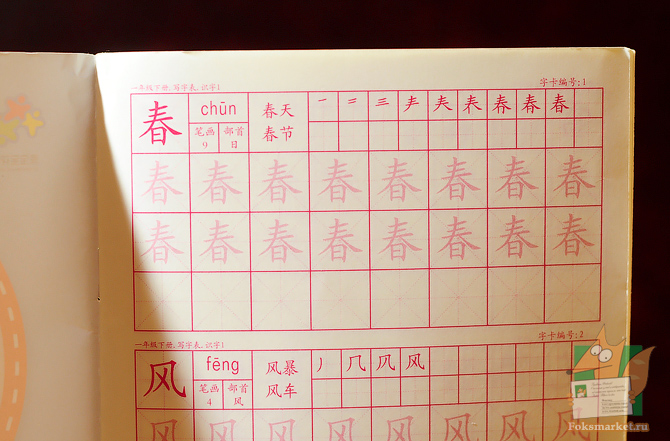 一年级下册，写字表，识字1 字卡编号:1
春 chūn 春天 一 二 三 𡗗 夫 春 春 春
笔画 部首 春节
9 日
春 春 春 春 春 春 春 春
春 春 春 春 春 春 春 春
一年级下册，写字表，识字1 字卡编号:2
风 fēng 风暴 丿 几 风 风
笔画 部首 风车
4 风
风 风 风 风 风 风 风 风
Foksmarket.ru